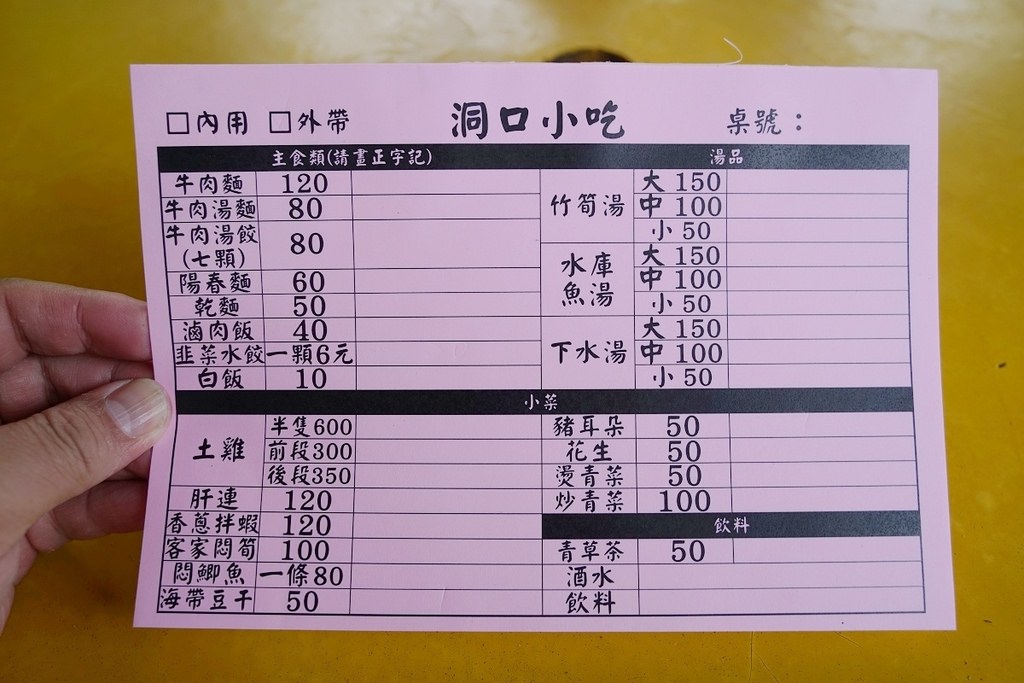 □內用 □外帶 洞口小吃 桌號：
主食類(請畫正字記)
牛肉麵 120
牛肉湯麵 80
牛肉湯餃(七顆) 80
陽春麵 60
乾麵 50
滷肉飯 40
韭菜水餃 一顆6元
白飯 10
湯品
竹筍湯 大 150
中 100
小 50
水庫魚湯 大 150
中 100
小 50
下水湯 大 150
中 100
小 50
小菜
土雞 半隻600
前段300
後段350
肝連 120
香蔥拌蝦 120
客家悶筍 100
悶鯽魚 一條80
海帶豆干 50
豬耳朵 50
花生 50
燙青菜 50
炒青菜 100
飲料
青草茶 50
酒水
飲料